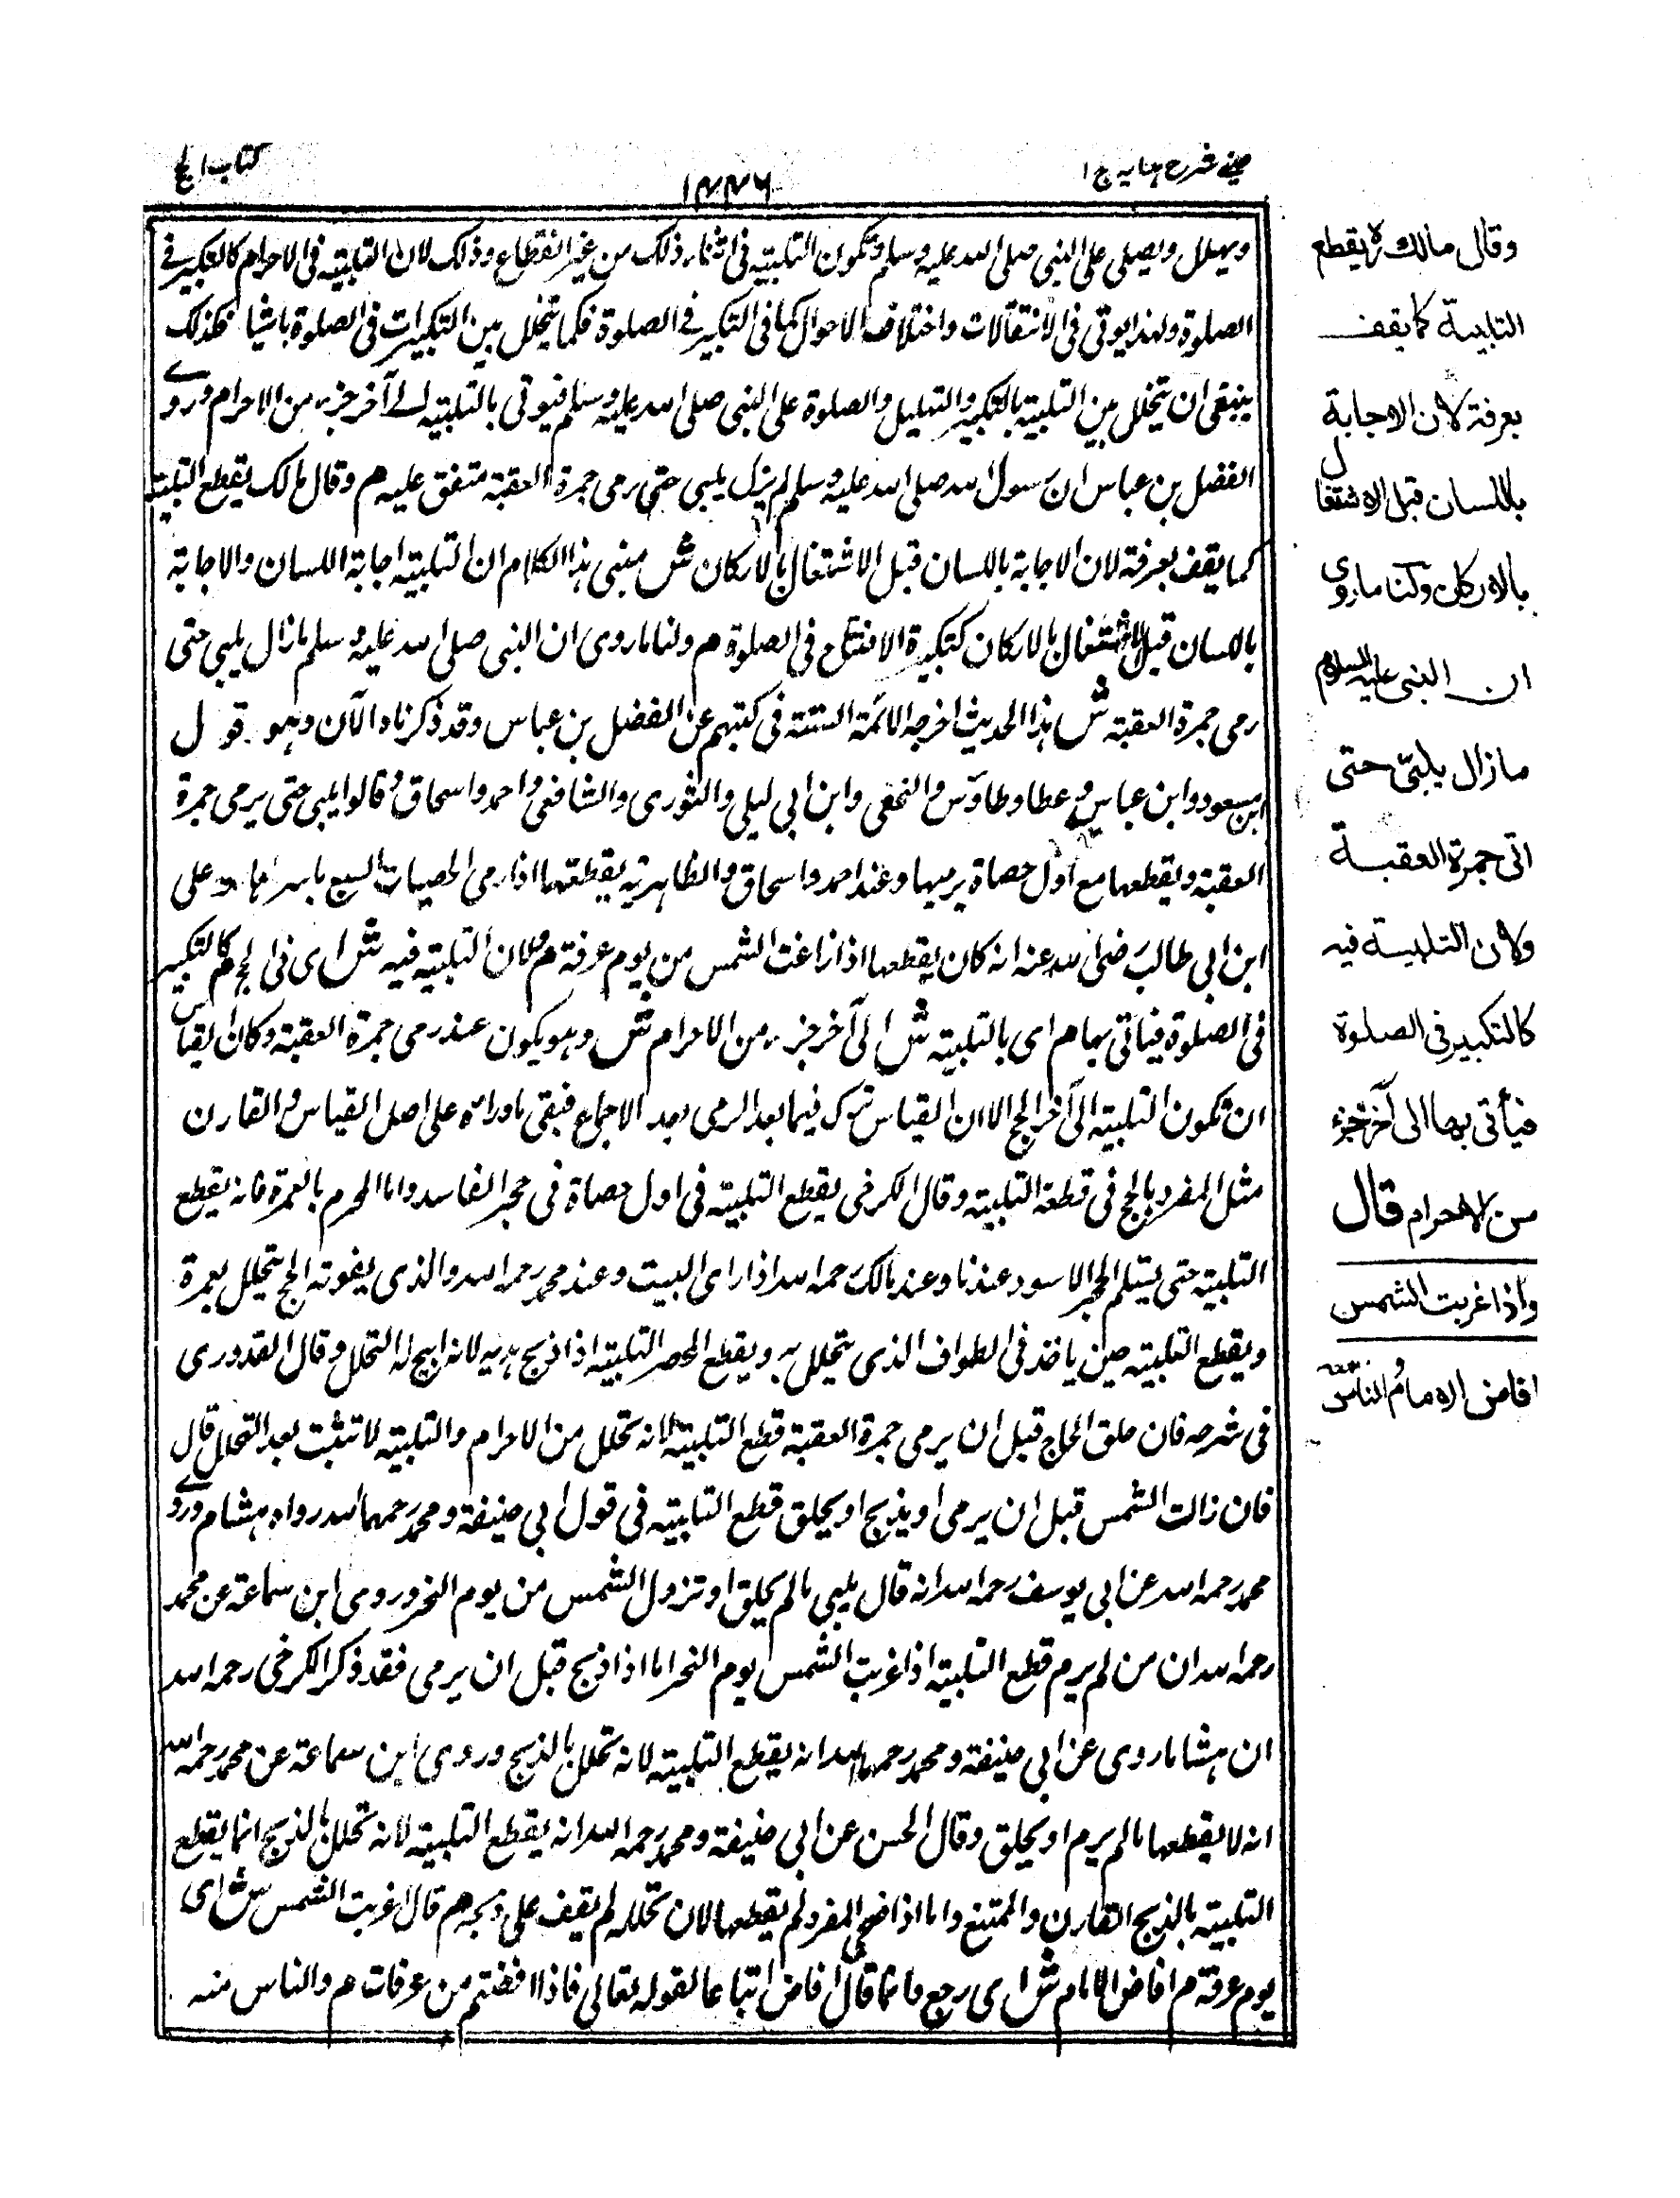 عینی شرح ہدایہ ج ۱
۱۴۴۶
کتاب الحج
ویهلل ویصلی علی النبی صلی الله علیه وسلم وتکون التلبیة فی اثناء ذلک من غیر انقطاع وذلک لان التلبیة فی الاحرام کالتکبیر فی
الصلوة ولهذا یوتی فی الانتقالات واختلاف الاحوال کما فی التکبیر فی الصلوة فکما یتخلل بین التکبیرات فی الصلوة باشیا فکذلک
ینبغی ان یتخلل بین التلبیة بالتکبیر والتهلیل والصلوة علی النبی صلی الله علیه وسلم فیوتی بالتلبیة الے آخر جزء من الاحرام وروے
الفضل بن عباس ان رسول الله صلی الله علیه وسلم لم یزل یلبی حتی رمی جمرة العقبة متفق علیه م وقال مالک یقطع التلبیة
کما یقف بعرفة لان الاجابة باللسان قبل الاشتغال بالارکان ش مبنی هذا الکلام ان التلبیة اجابة اللسان والاجابة
بالاسان قبل الاشتغال بالارکان کتکبیرة الافتتاح فی الصلوة م ولنا ما روی ان النبی صلی الله علیه وسلم ما زال یلبی حتی
رمی جمرة العقبة ش هذا الحدیث اخرجه الائمة الستة فی کتبهم عن الفضل بن عباس وقد ذکرناه الآن وهو قول
ابن مسعود وابن عباس و عطا وطاؤس والنخعی وابن ابی لیلی والثوری والشافعی واحمد واسحاق وقالوا یلبی حتی یرمی جمرة
العقبة ویقطعها مع اول حصاة یرمیها وعند احمد واسحاق والظاهریة یقطعها اذا رمی الحصیات السبع باسرها وعلی
ابن ابی طالب رضی الله عنه انه کان یقطعها اذا زاغت الشمس من یوم عرفة م ولان التلبیة فیه ش ای فی الحج م کالتکبیر
فی الصلوة فیأتی بها م ای بالتلبیة ش الی آخر جزء من الاحرام ش وهو یکون عند رمی جمرة العقبة وکان القیاس
ان تکون التلبیة الی آخر الحج الا ان القیاس ترک فیما بعد الرمی بعد الاجماع فبقی ما وراءه علی اصل القیاس والقارن
مثل المفرد بالحج فی قطعة التلبیة وقال الکرخی یقطع التلبیة فی اول حصاة فی حج الفاسد واما المحرم بالعمرة فانه یقطع
التلبیة حتی یستلم الحجر الاسود عندنا وعند مالک رحمه الله اذا رای البیت وعند محمد رحمه الله والذی یفوته الحج یتحلل بعمرة
ویقطع التلبیة حین یاخذ فی الطواف الذی یتحلل به ویقطع المحصر التلبیة اذا ذبح هدیه لانه ابیح له التحلل وقال القدوری
فی شرحه فان حلق الحاج قبل ان یرمی جمرة العقبة قطع التلبیة لانه تحلل من الاحرام والتلبیة لا تثبت بعد التحلل قال
فان زالت الشمس قبل ان یرمی او یذبح او یحلق قطع التلبیة فی قول ابی حنیفة ومحمد رحمهما الله رواه هشام وروے
محمد رحمه الله عن ابی یوسف رحمه الله انه قال یلبی ما لم یحلق او تزول الشمس من یوم النحر وروی ابن سماعة عن محمد
رحمه الله ان من لم یرم قطع التلبیة اذا غربت الشمس یوم النحر اما اذا ذبح قبل ان یرمی فقد ذکر الکرخی رحمه الله
ان هشاما روی عن ابی حنیفة ومحمد رحمهما الله انه یقطع التلبیة لانه تحلل بالذبح وروی ابن سماعة عن محمد رحمه الله
انه لا یقطعها ما لم یرم او یحلق وقال الحسن عن ابی حنیفة ومحمد رحمه الله انه یقطع التلبیة لانه تحلل بالذبح انما یقطع
التلبیة بالذبح القارن والمتمتع واما اذا ضحی المفرد لم یقطعها لان تحلله لم یقف علی ذبحه م قال غربت الشمس ش ای
یوم عرفة م افاض الامام ش ای رجع وانما قال افاض اتباعا لقوله تعالی فاذا افضتم من عرفات م والناس منه
وقال مالك رہ یقطع
التلبیة کما یقف
بعرفة لان الاجابة
باللسان قبل الاشتغال
بالارکان ولنا ما روی
ان النبی علیه السلام
ما زال یلبّی حتی
اتی جمرة العقبة
ولان التلبیة فیه
کالتکبیر فی الصلوة
فیأتی بها الی آخر جزء
من الاحرام قال
واذا غربت الشمس
افاض الامامُ والناس معه